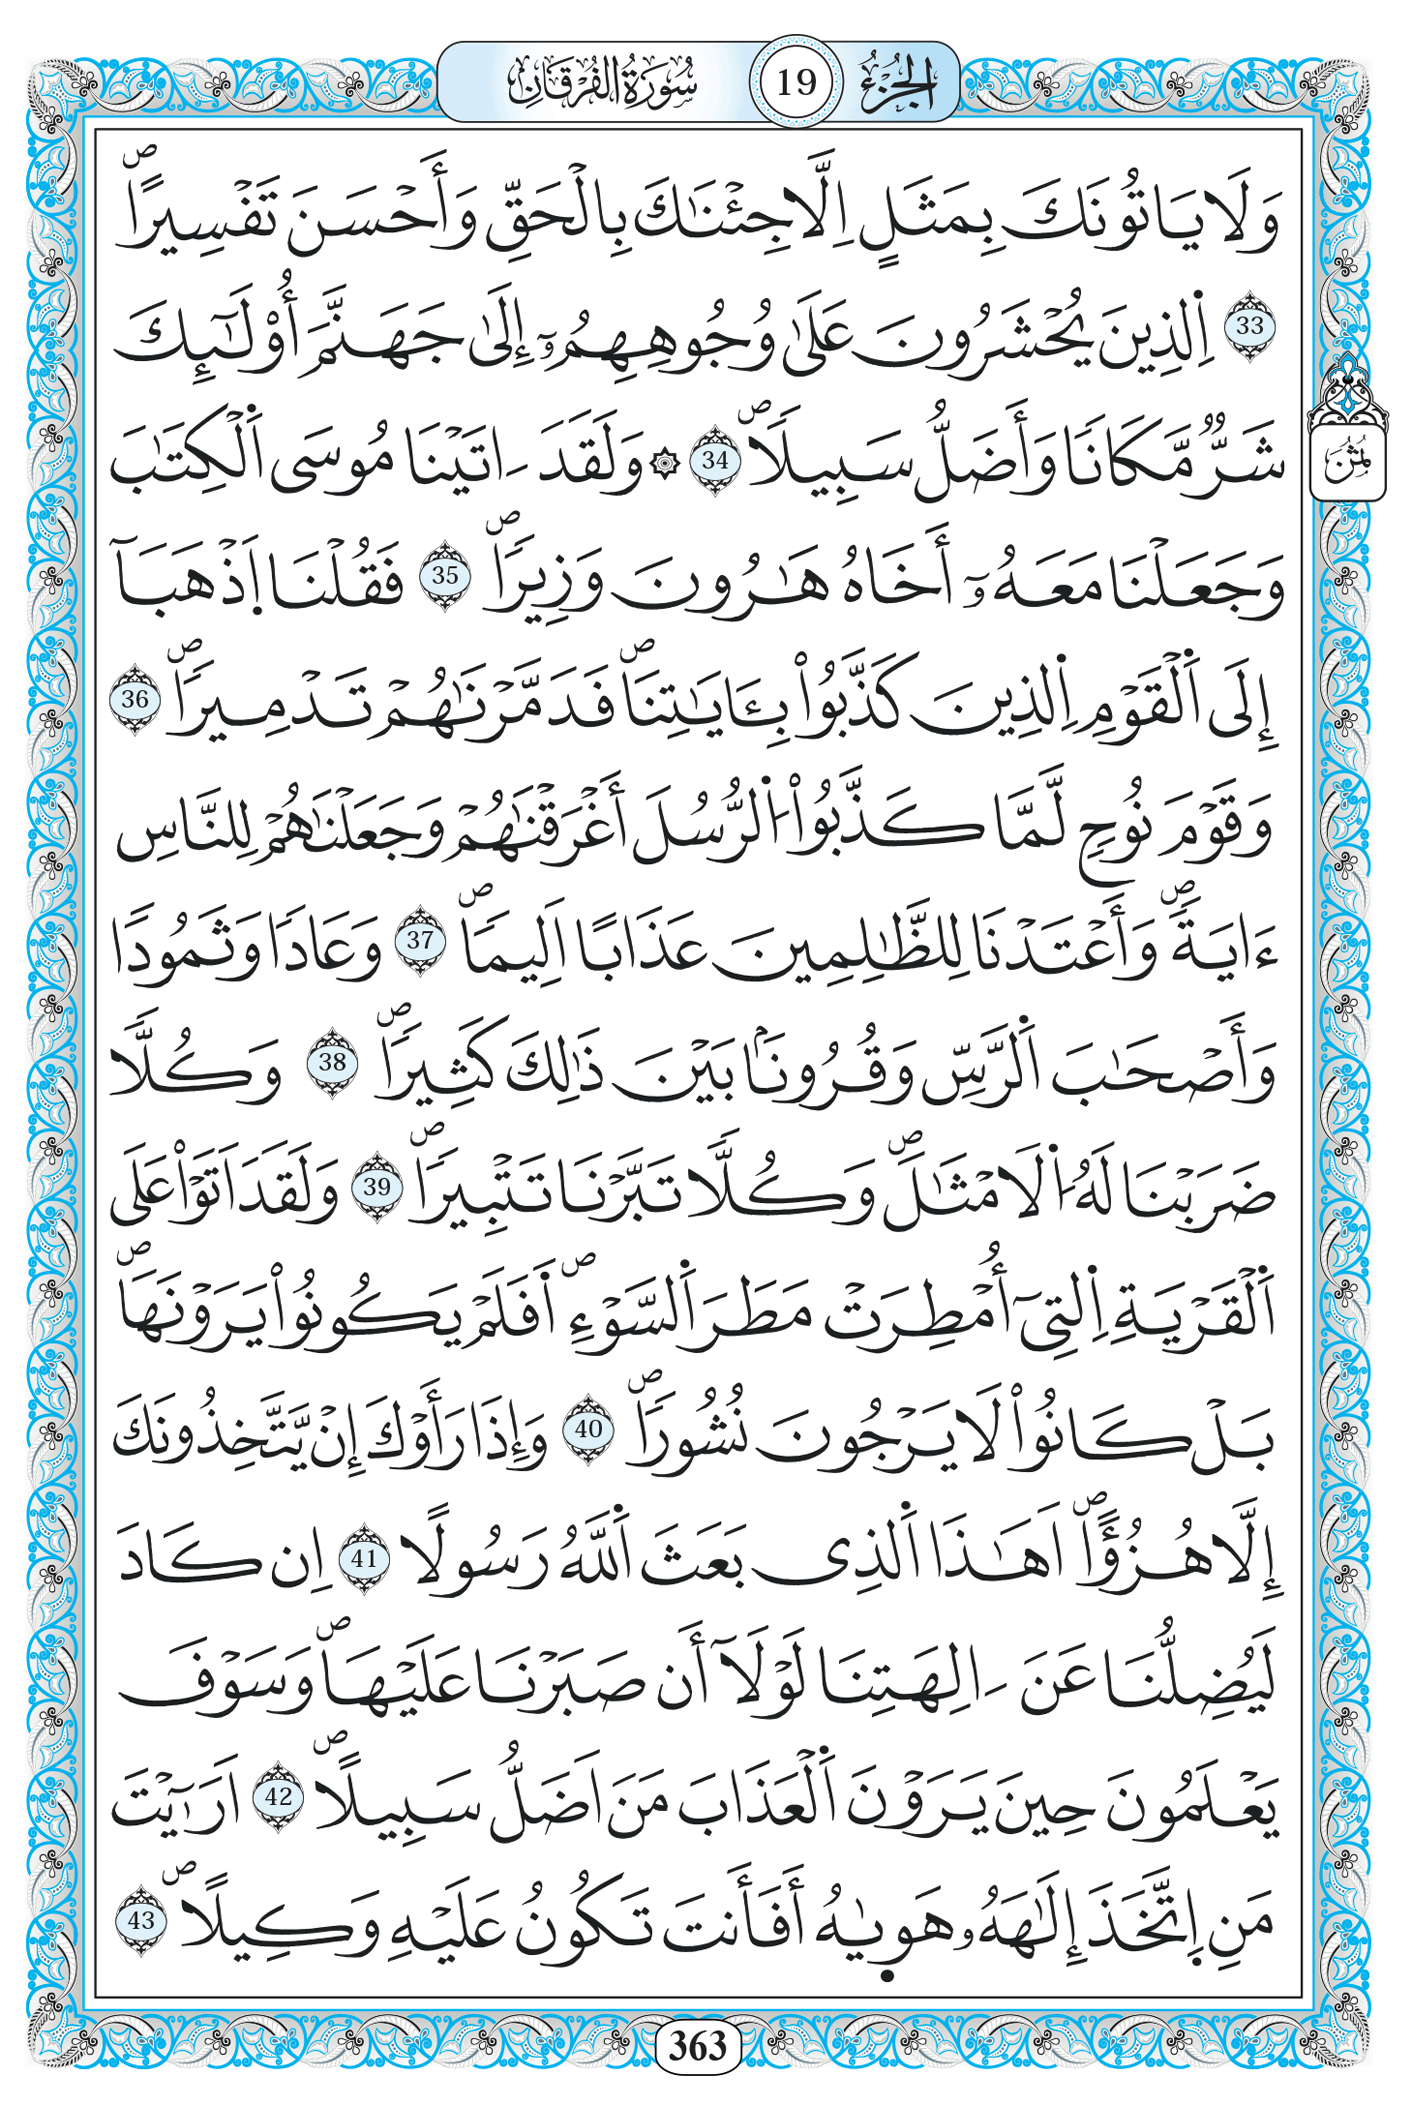 سُورَةُ الفُرْقَانِ 19 الجُزْءُ
وَلَا يَاتُونَكَ بِمَثَلٍ اِلَّا جِئْنَٰكَ بِالْحَقِّ وَأَحْسَنَ تَفْسِيرًاۖ
33 اِ۬لذِينَ يُحْشَرُونَ عَلَىٰ وُجُوهِهِمُۥٓ إِلَىٰ جَهَنَّمَ أُوْلَٰٓئِكَ
شَرّٞ مَّكَانٗا وَأَضَلُّ سَبِيلٗاۖ 34 ۞ وَلَقَدَ ـاتَيْنَا مُوسَى اَ۬لْكِتَٰبَ
وَجَعَلْنَا مَعَهُۥٓ أَخَاهُ هَٰرُونَ وَزِيرٗاۖ 35 فَقُلْنَا اَ۪ذْهَبَآ
إِلَى اَ۬لْقَوْمِ اِ۬لذِينَ كَذَّبُواْ بِـَٔايَٰتِنَاۖ فَدَمَّرْنَٰهُمْ تَدْمِيرٗاۖ 36
وَقَوْمَ نُوحٖ لَّمَّا كَذَّبُواْ اُ۬لرُّسُلَ أَغْرَقْنَٰهُمْ وَجَعَلْنَٰهُمْ لِلنَّاسِ
ءَايَةٗۖ وَأَعْتَدْنَا لِلظَّٰلِمِينَ عَذَابًا اَلِيمٗاۖ 37 وَعَادٗا وَثَمُودٗا
وَأَصْحَٰبَ اَ۬لرَّسِّ وَقُرُونَۢا بَيْنَ ذَٰلِكَ كَثِيرٗاۖ 38 وَكُلّٗا
ضَرَبْنَا لَهُ اُ۬لَامْثَٰلَۖ وَكُلّٗا تَبَّرْنَا تَتْبِيرٗاۖ 39 وَلَقَدَ اَتَوْاْ عَلَى
اَ۬لْقَرْيَةِ اِ۬لتِےٓ أُمْطِرَتْ مَطَرَ اَ۬لسَّوْءِۖ اَفَلَمْ يَكُونُواْ يَرَوْنَهَاۖ
بَلْ كَانُواْ لَا يَرْجُونَ نُشُورٗاۖ 40 وَإِذَا رَأَوْكَ إِنْ يَّتَّخِذُونَكَ
إِلَّا هُزُؤًاۖ اَهَٰذَا اَ۬لذِے بَعَثَ اَ۬للَّهُ رَسُولًا 41 اِن كَادَ
لَيُضِلُّنَا عَنَ ـالِهَتِنَا لَوْلَآ أَن صَبَرْنَا عَلَيْهَاۖ وَسَوْفَ
يَعْلَمُونَ حِينَ يَرَوْنَ اَ۬لْعَذَابَ مَنَ اَضَلُّ سَبِيلًاۖ 42 اَرَٰٓيْتَ
مَنِ اِ۪تَّخَذَ إِلَٰهَهُۥ هَو۪يٰهُ أَفَأَنتَ تَكُونُ عَلَيْهِ وَكِيلًاۖ 43
ثُمُن
363